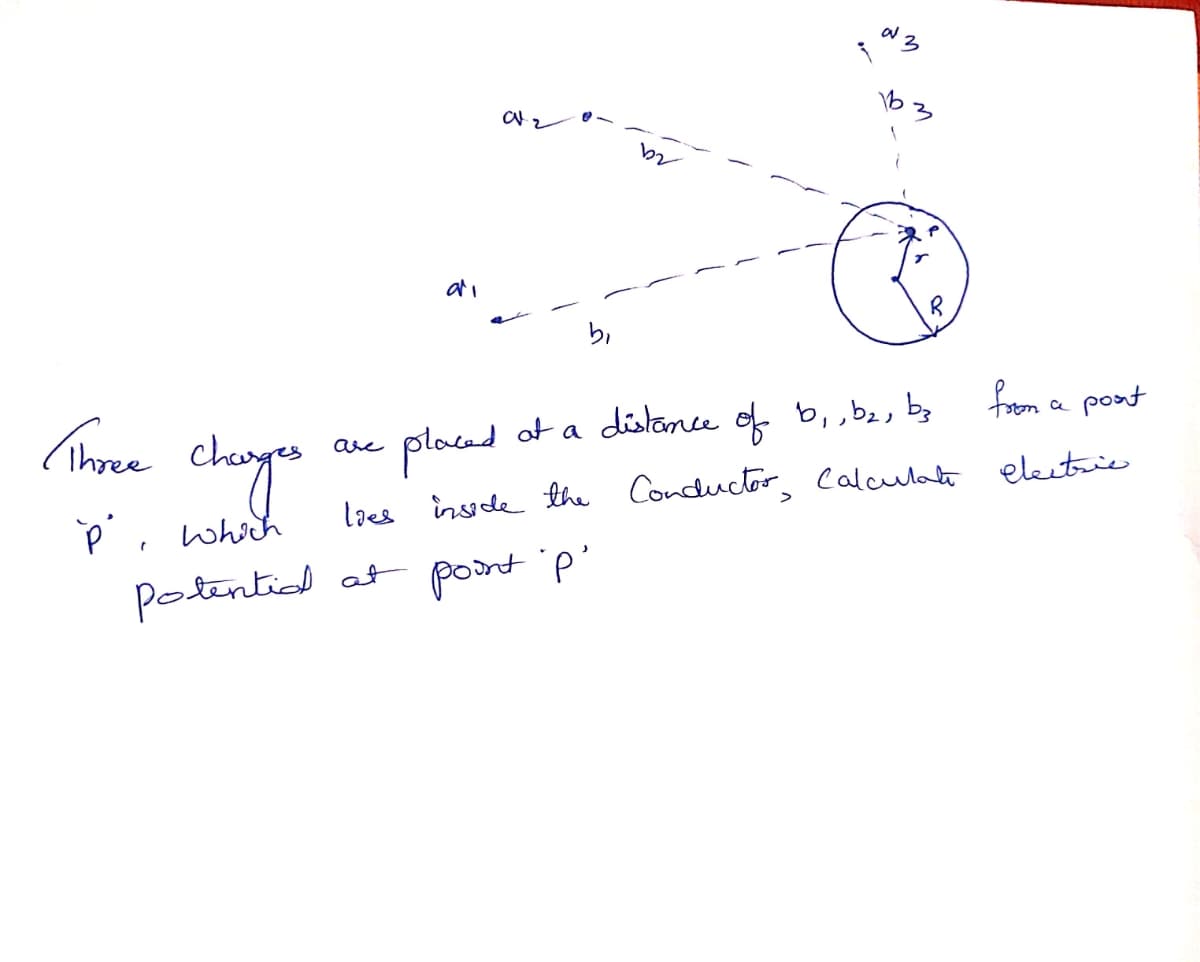 q3
b3
q2
b2
P
r
q1
R
b1
Three charges are placed at a distance of b1, b2, b3 from a point
'p', which lies inside the Conductor, Calculate electric
potential at point 'p'